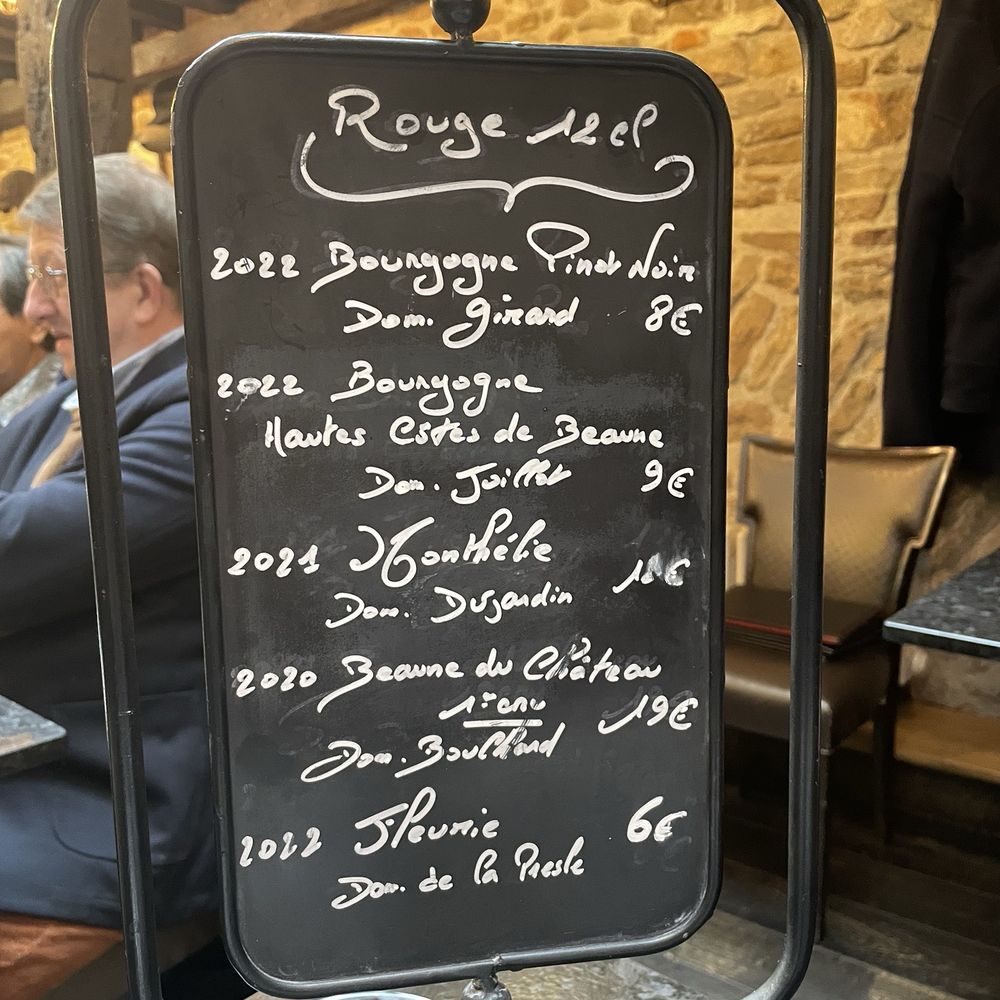 Rouge 12cl
2022 Bourgogne Pinot Noir
Dom. Girard 8€
2022 Bourgogne
Hautes Côtes de Beaune
Dom. Juillot 9€
2021 Monthélie
Dom. Dujardin
2020 Beaune du Château
1er cru 19€
Dom. Bouchard
2022 Fleurie 6€
Dom. de la Presle